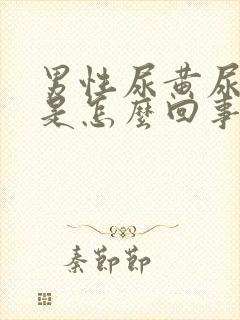 男性尿黄尿
是怎麼回事
秦節節